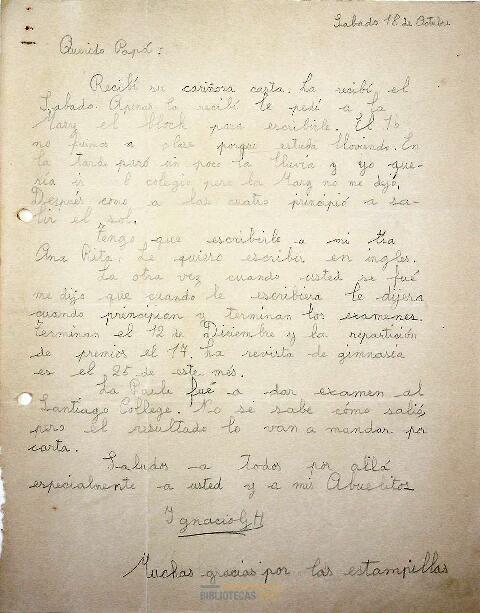 Sabado 18 de Octubre
Querido Papá:
Recibí su cariñosa carta. La recibí el
Sabado. Apenas la recibí le pedí a la
Mary el block para escribirle. El 16
no fuimos a clase porque estuvo lloviendo. En
la tarde paró un poco la lluvia y yo que-
ría ir al colegio pero la Mary no me dejó.
Después como a las cuatro principió a sa-
lir el sol.
Tengo que escribirle a mi tia
Ana Rita. Le quiero escribir en ingles.
La otra vez cuando usted se fué
me dijo que cuando le escribiera le dijera
cuando principian y terminan los examenes.
Terminan el 12 de Diciembre y la repartición
de premios el 17. La revista de gimnasia
es el 25 de este mes.
La Paule fué a dar examen al
Santiago College. No se sabe cómo salió
pero el resultado lo van a mandar por
carta.
Saludos a todos por allá
especialmente a usted y a mis Abuelitos
Ignacio G H
Muchas gracias por las estampillas
BIBLIOTECAS